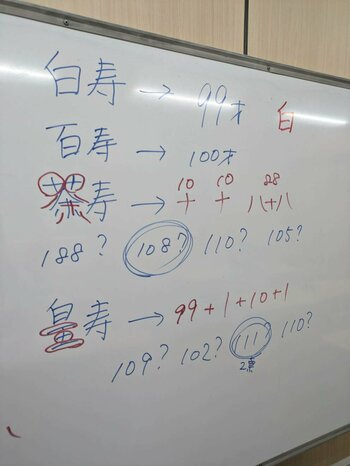 白寿 → 99才 白
百寿 → 100才
10 10 88
茶寿 → 十 十 八十八
188? 108? 110? 105?
皇寿 → 99+1+10+1
109? 102? 111? 110?
2票